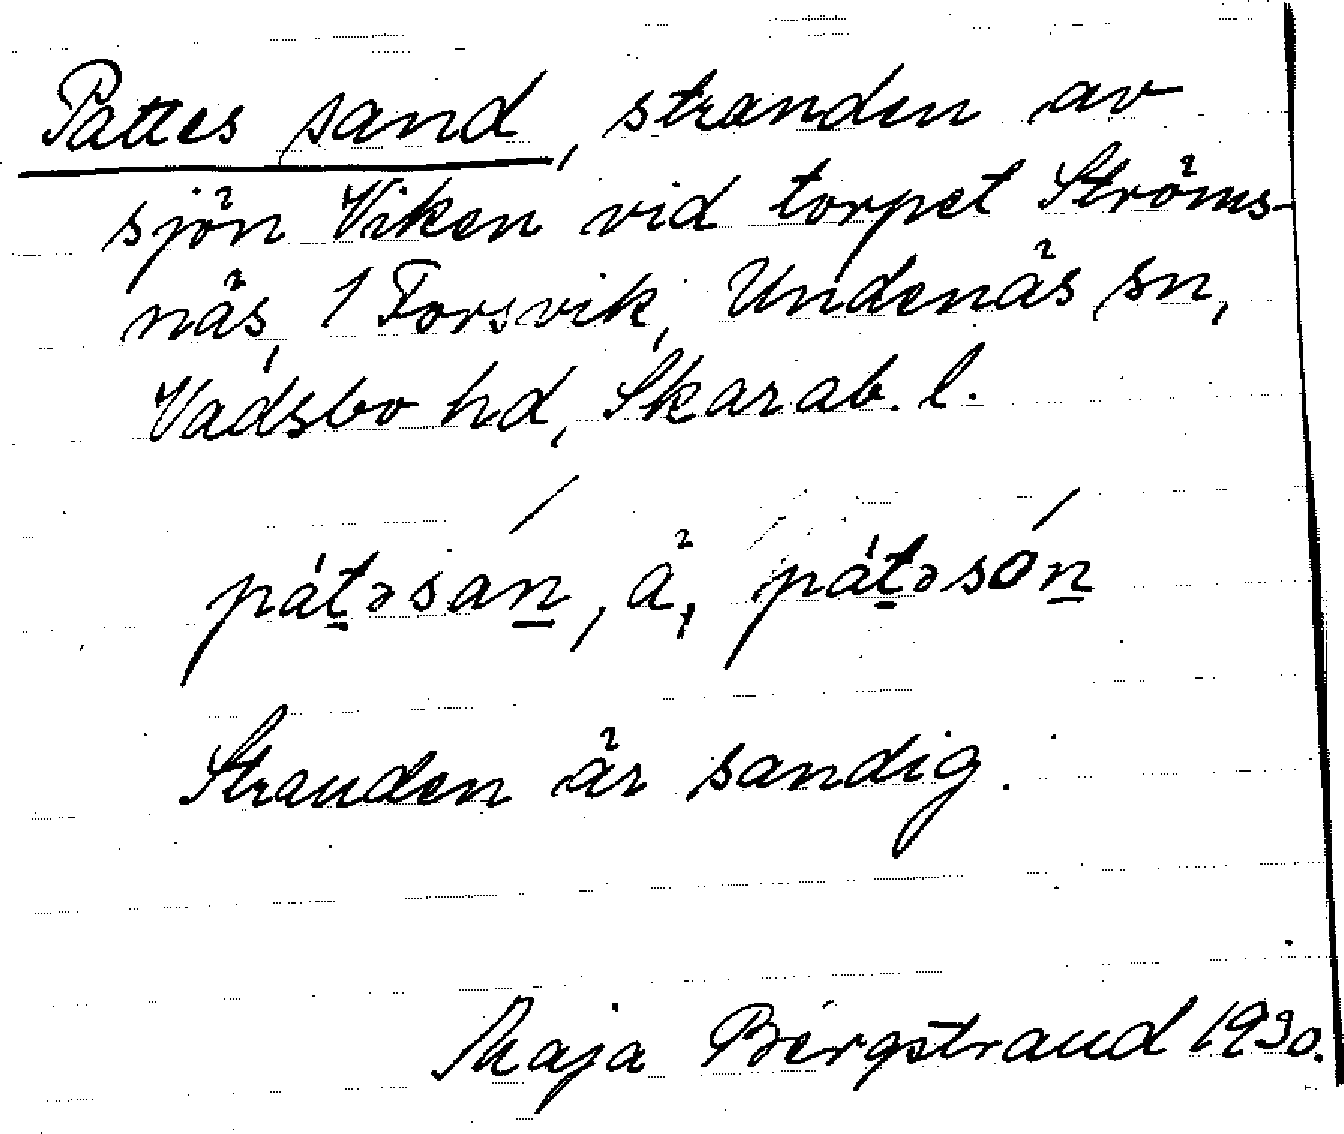 Pattes sand, stranden av
sjön Viken vid torpet Ströms-
näs, 1 Forsvik, Undenäs sn,
Vadsbo hd, Skarab. l.
pátəsán̲, ä, pátəsón̲
Stranden är sandig.
Maja Bergstrand 1930.